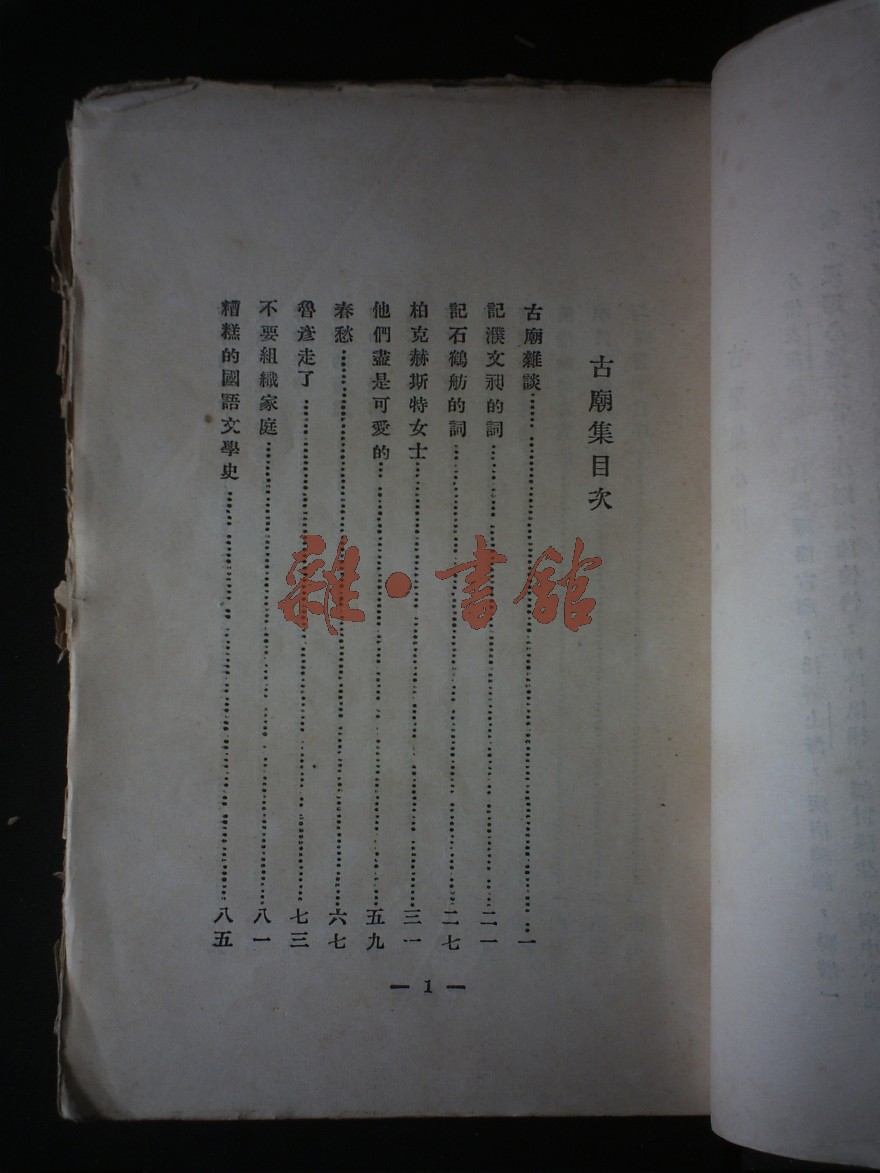 古廟集目次
古廟雜談…………一
記濮文昶的詞…………二一
記石鶴舫的詞…………二七
柏克赫斯特女士…………三一
他們盡是可愛的…………五九
春愁…………六七
魯彥走了…………七三
不要組織家庭…………八一
糟糕的國語文學史…………八五
— 1 —
雜·書館